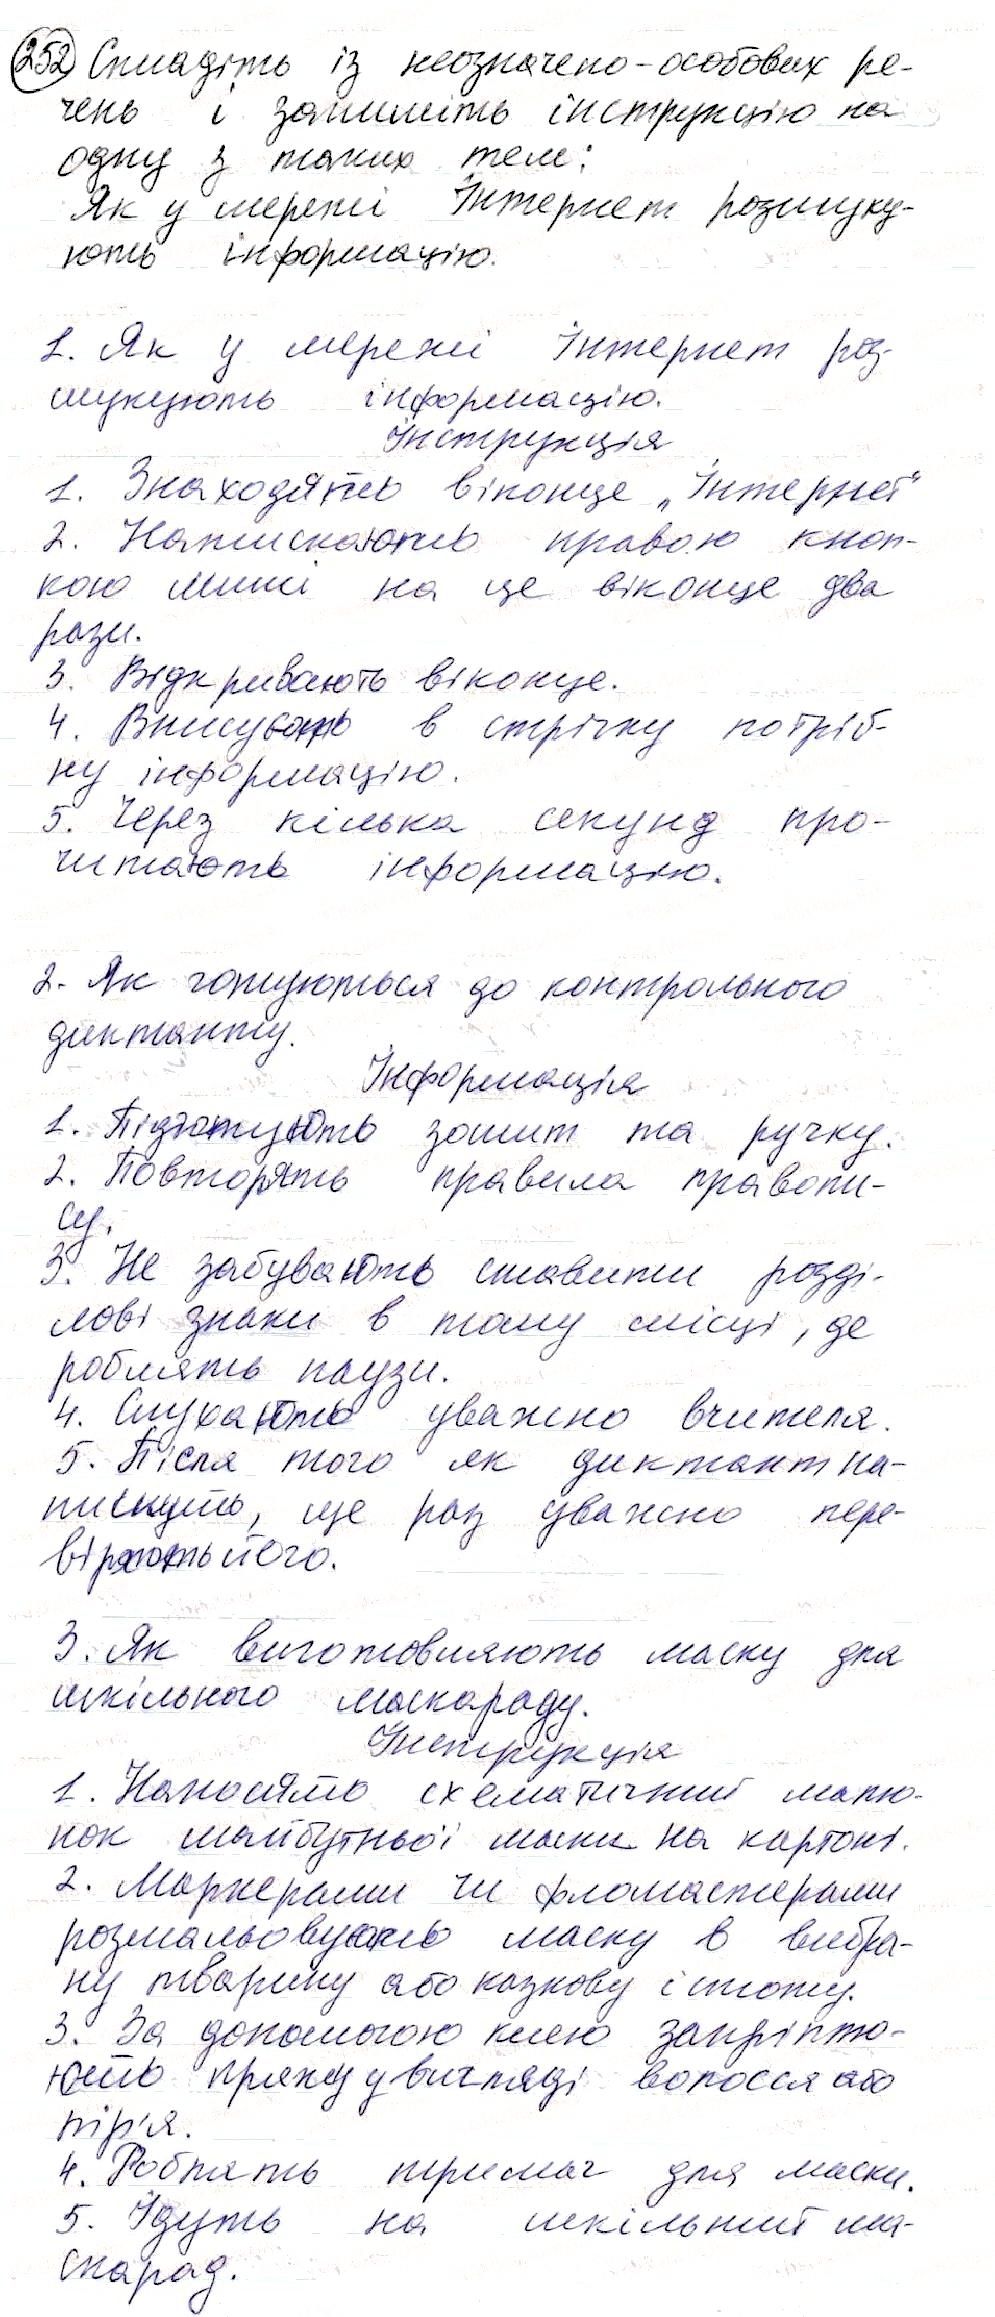 252 Складіть із неозначено-особових ре-
чень і запишіть інструкцію на
одну з таких тем:
Як у мережі Інтернет розшуку-
ють інформацію.
1. Як у мережі Інтернет роз-
шукують інформацію.
Інструкція
1. Знаходять віконце „Інтернет"
2. Натискають правою кноп-
кою миші на це віконце два
рази.
3. Відкривають віконце.
4. Вписують в стрічку потріб-
ну інформацію.
5. Через кілька секунд про-
читають інформацію.
2. Як готуються до контрольного
диктанту.
Інформація
1. Підготують зошит та ручку.
2. Повторять правила правопи-
су.
3. Не забувають ставити розді-
лові знаки в тому місці, де
роблять паузи.
4. Слухають уважно вчителя.
5. Після того як диктант на-
пишуть, ще раз уважно пере-
віряють його.
3. Як виготовляють маску для
шкільного маскараду.
Інструкція
1. Наносять схематичний малю-
нок майбутньої маски на картоні.
2. Маркерами чи фломастерами
розмальовують маску в вибра-
ну тварину або казкову істоту.
3. За допомогою клею закріплю-
ють пряжу у вигляді волосся або
пір'я.
4. Роблять тримач для маски.
5. Йдуть на шкільний ма-
скарад.